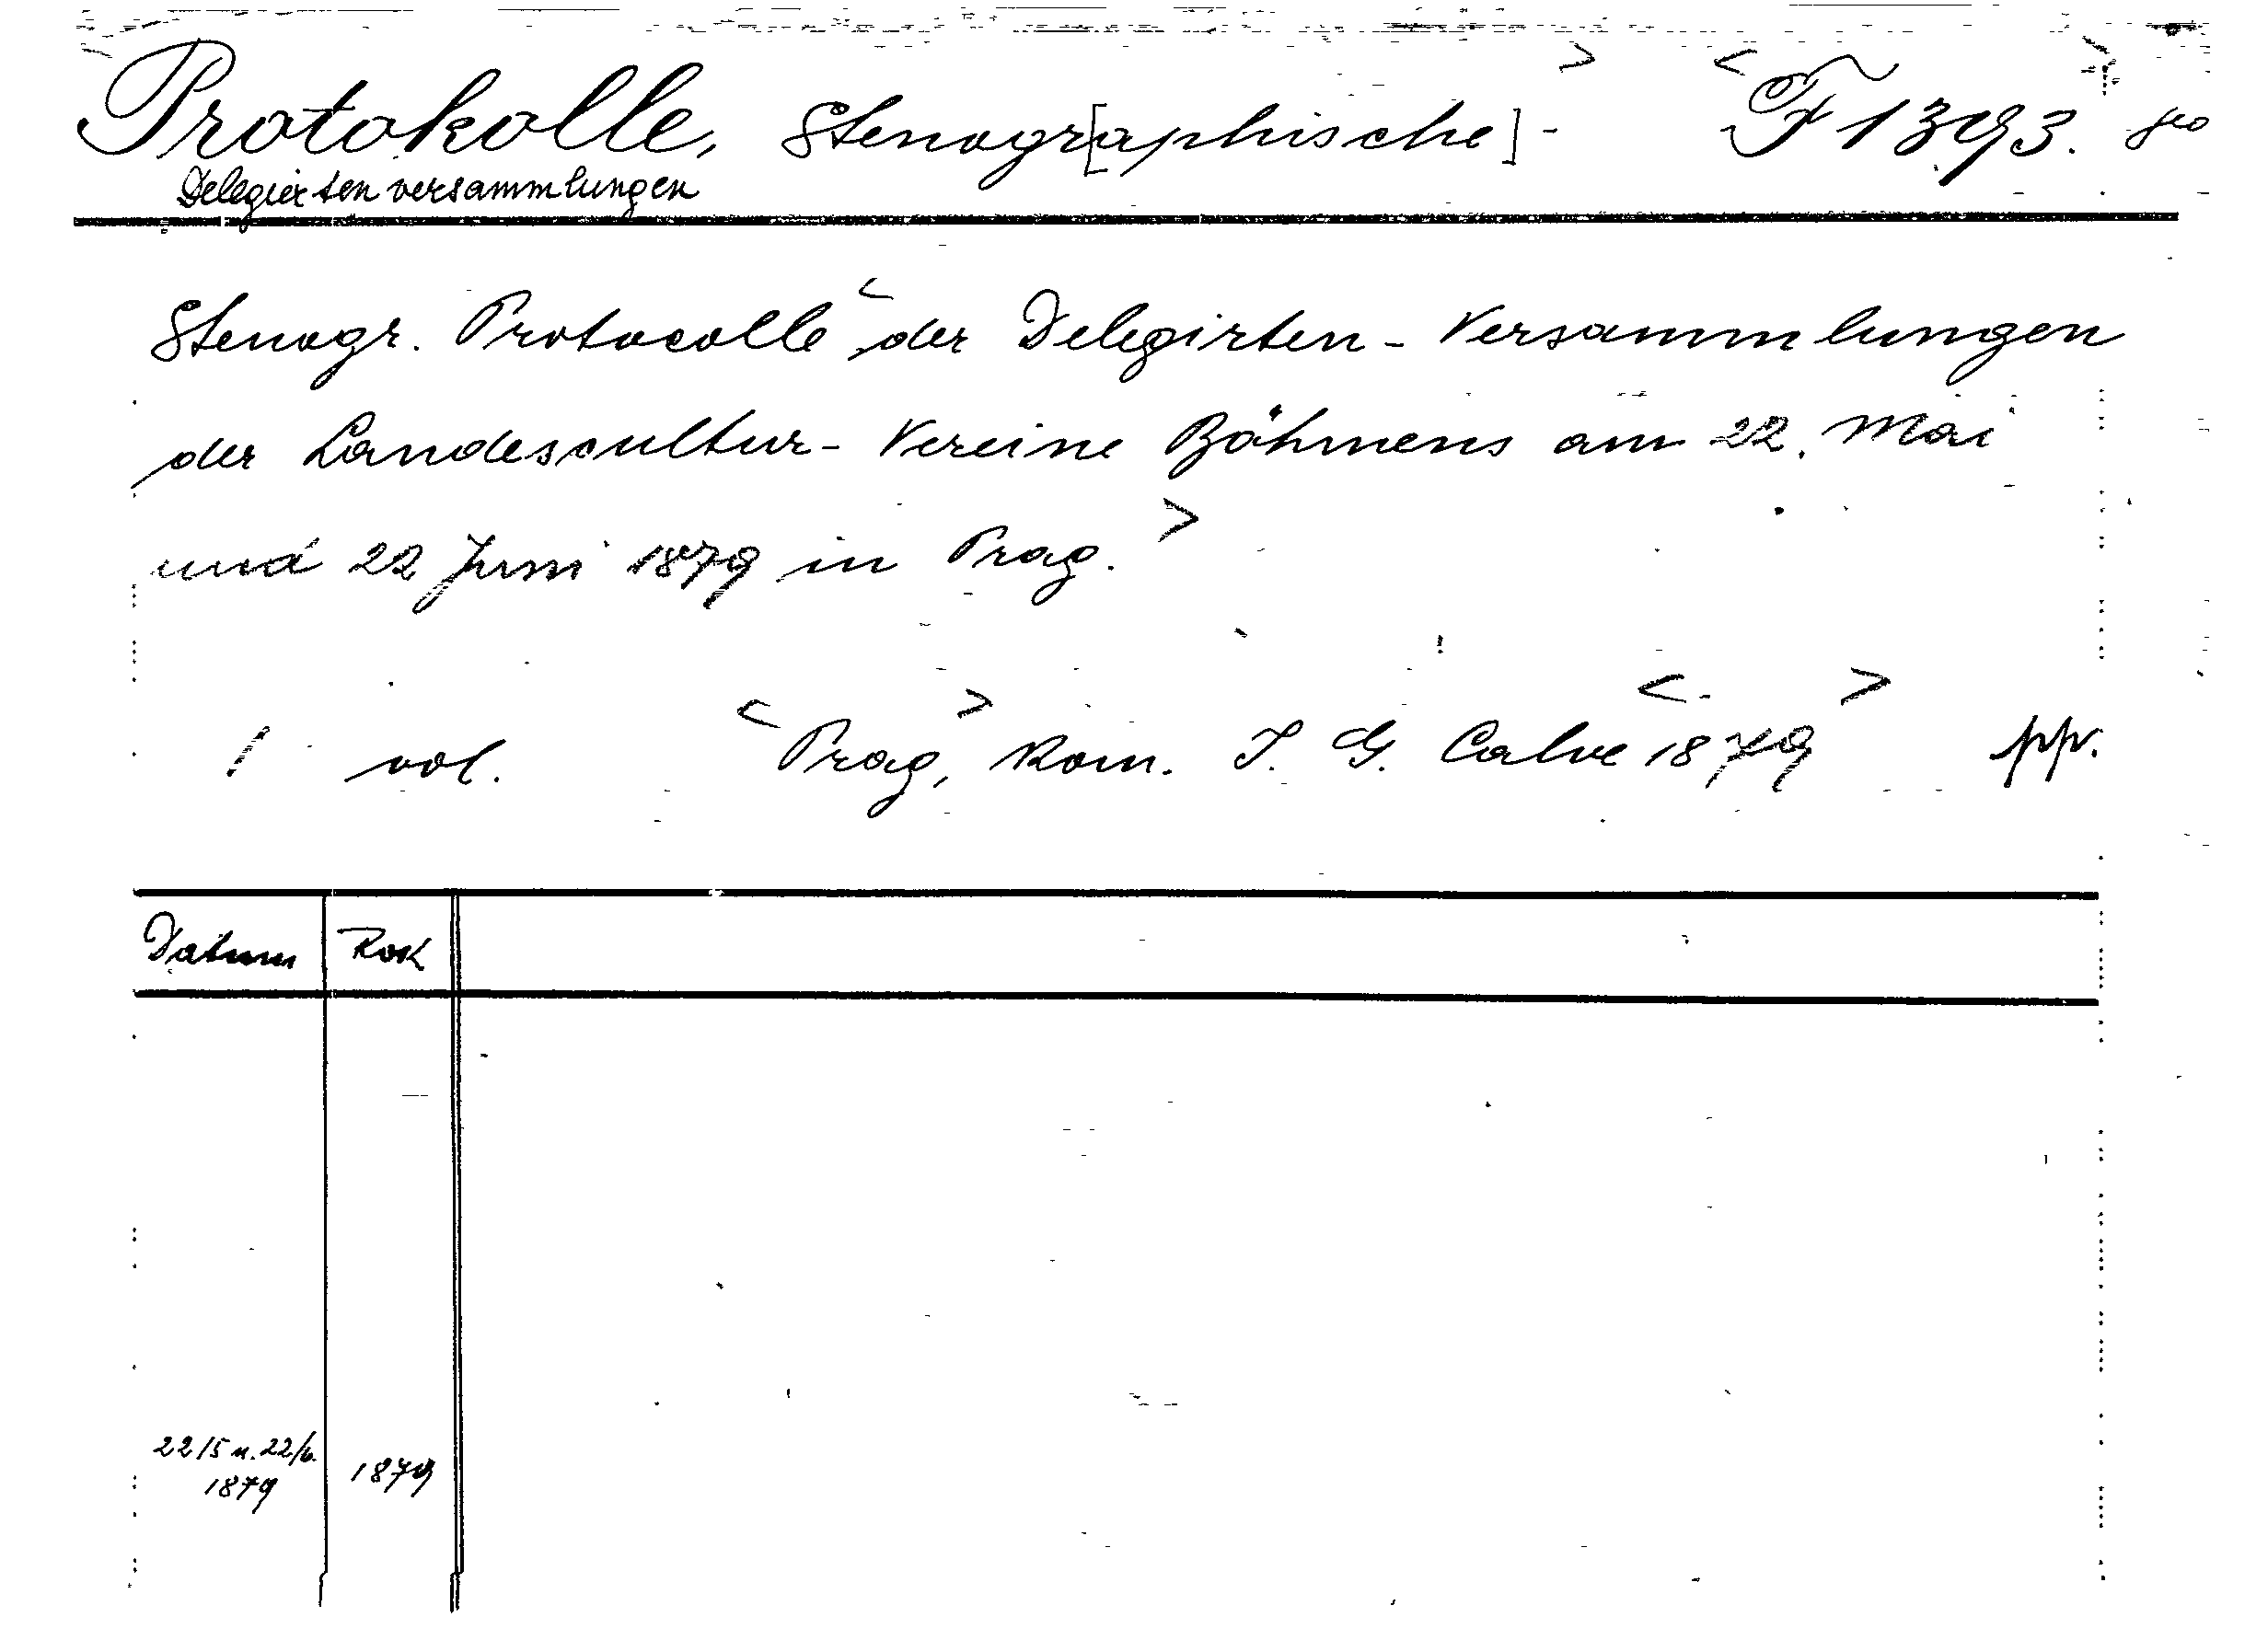 Protokolle, Stenogr[aphische] - F 1393. 8º
Delegierten versammlungen
Stenogr. Protocolle der Delegirten - Versammlungen
der Landescultur - Vereine Böhmens am 22. Mai
und 22 Juni 1879 in Prag.
1 vol. Prag, Kom. J. G. Calve 1879 pp.
Datum Rok
22/5 u. 22/6. 1879
1879